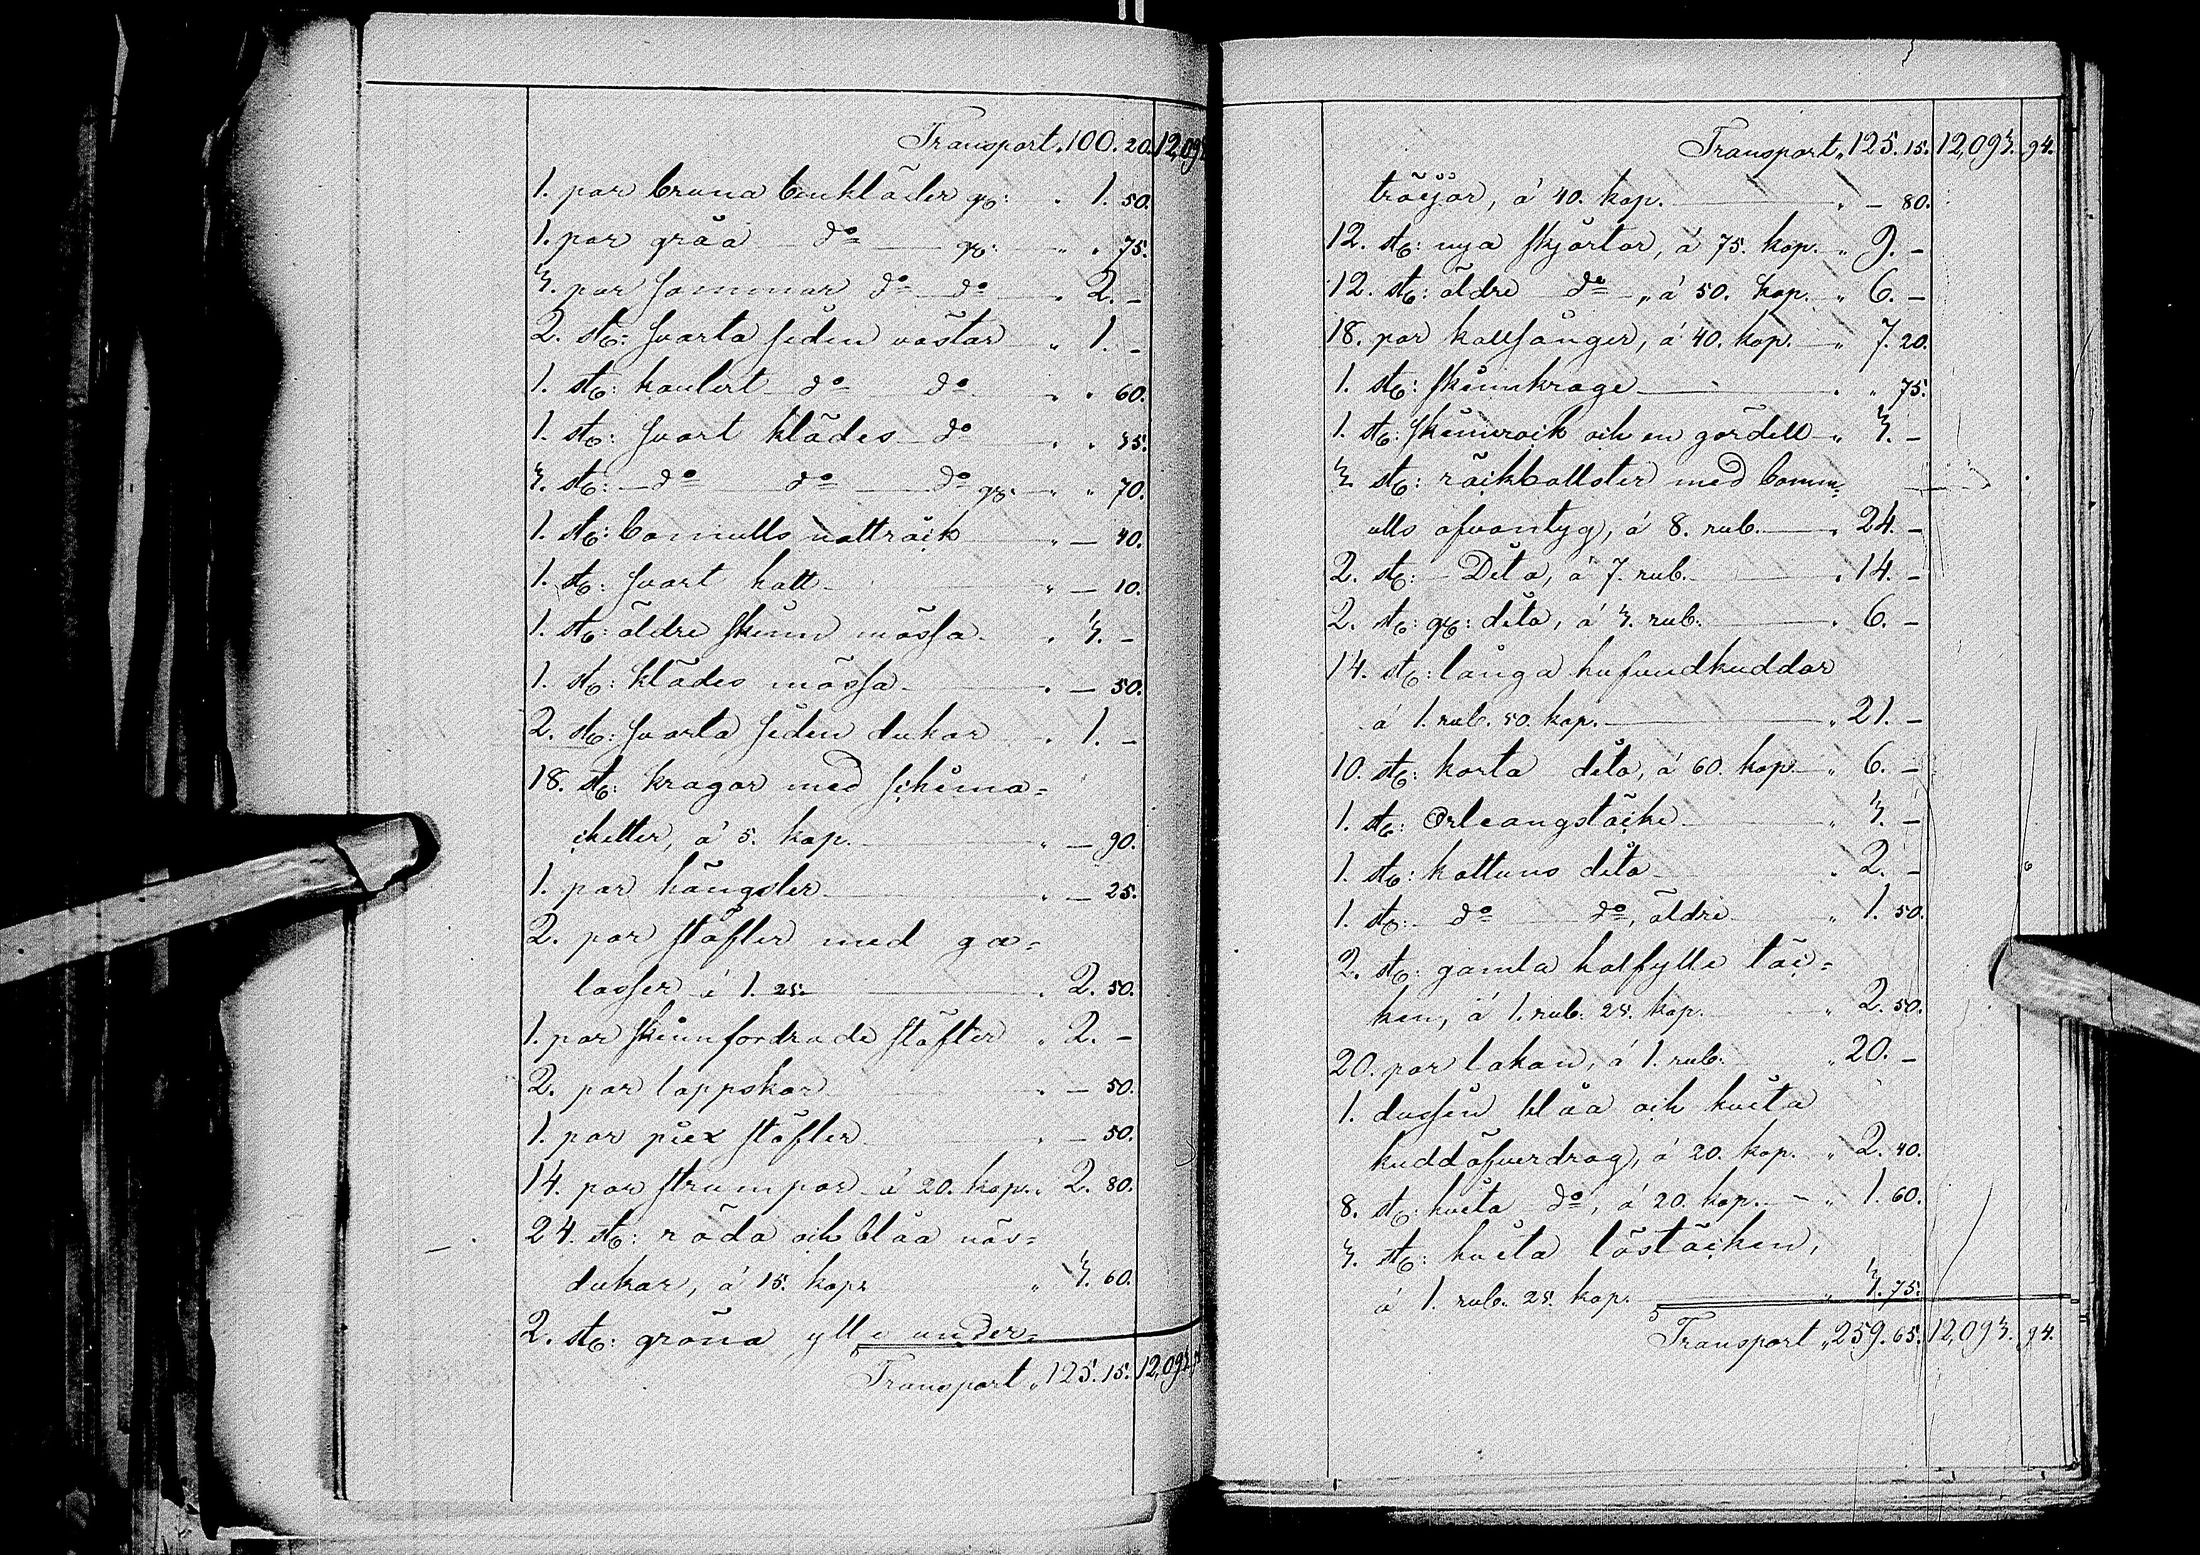 Transport „ 100. 20. 12,093
1. par bruna benkläder gs: „ 1. 50.
1. par gråa do gs: „ „ 75.
3. par sommar do do „ 2. –
2. st: svarta siden västar „ 1. –
1. st: koulert do do „ „ 60.
1. st: svart klädes do „ „ 35.
3. st: do do do gs: „ „ 70.
1. st: bomulls nattrock „ – 40.
1. st: svart hatt „ – 10.
1. st: äldre skinn mössa „ 3. –
1. st: klädes mössa „ – 50.
2. st: svarta siden dukar „ 1. –
18. st: kragar med schema=
chetter, á 5. kop. „ – 90.
1. par hängsler „ – 25.
2. par stöfler med ga=
losser á 1. 25. „ 2. 50.
1. par skinnfordrade stöfler „ 2. –
2. par lappskor „ – 50.
1. par piex stöfler „ – 50.
14. par strumpor á 20. kop. „ 2. 80.
24. st: röda och blåa näs=
dukar, á 15. kop. „ 3. 60.
2. st: gröna ylle under=
Transport „ 125. 15. 12,093
Transport „ 125. 15. 12,093. 94.
tröijor, á 40. kop. „ – 80.
12. st: nya skjortor, á 75. kop. „ 9. –
12. st: äldre do „ á 50. kop. „ 6. –
18. par kallsånger, á 40. kop. „ 7. 20.
1. st: skinnkrage „ „ 75.
1. st: skinnrock och en gördell „ 3. –
3 st: räckbollster med bomm=
ulls ofvantyg, á 8. rub. „ 24. –
2. st: Dito, á 7. rub. „ 14. –
2. st: gs: dito, á 3. rub. „ 6. –
14. st: långa hufvudkuddar
á 1. rub. 50. kop. „ 21. –
10. st: korta dito, á 60. kop. „ 6. –
1. st: Orleangstäcke „ 3. –
1. st: kattuns dito „ 2. –
1. st: do do, äldre „ 1. 50.
2. st: gamla halfylle täc=
ken, á 1. rub. 25. kop. „ 2. 50.
20. par lakan, á 1. rub. „ 20. –
1. dussin blåa och hvita
kuddöfverdrag, á 20. kop. „ 2. 40.
8. st: hvita do, á 20. kop. – „ 1. 60.
3. st: hvita löstäcken,
á 1. rub. 25. kop. „ 3. 75.
Transport „ 259. 65. 12,093. 94.